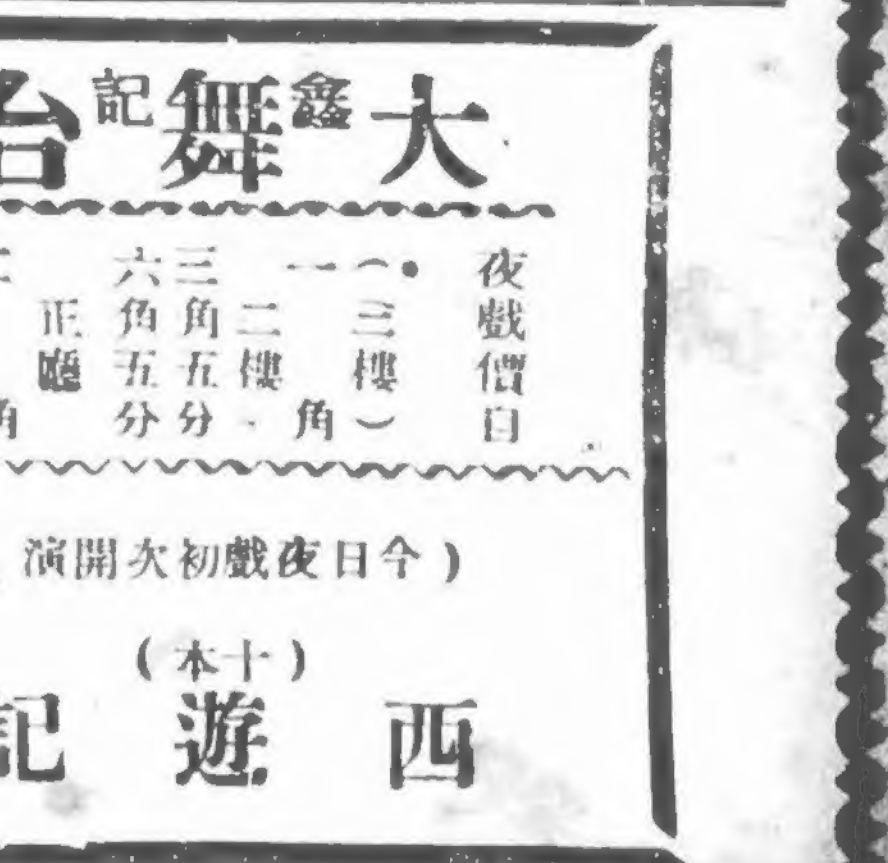 大鑫舞記台
夜戲價目
•(三樓)
一角
二樓
三角五分
六角五分
正廳
(今日夜戲初次開演
(十本)
西遊記